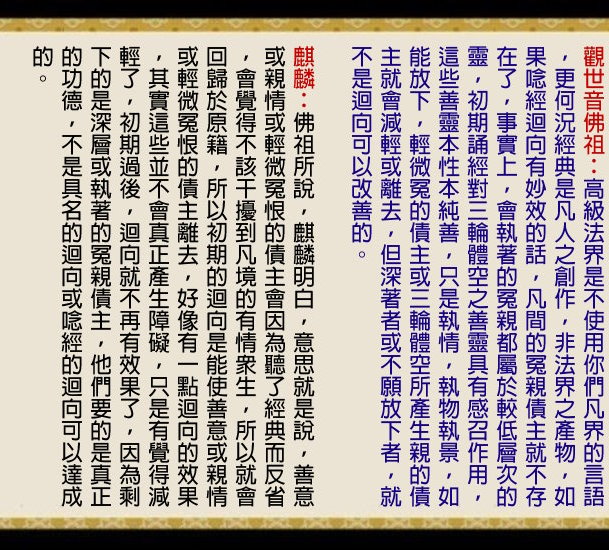 觀世音佛祖：高級法界是不使用你們凡界的言語
，更何況經典是凡人之創作，非法界之產物，如
果唸經迴向有妙效的話，凡間的冤親債主就不存
在了，事實上，會執著的冤親都屬於較低層次的
靈，初期誦經對三輪體空之善靈具有感召作用，
這些善靈本性本純善，只是執情，執物執景，如
能放下，輕微冤的債主或三輪體空所產生親的債
主就會減輕或離去，但深著者或不願放下者，就
不是迴向可以改善的。
麒麟：佛祖所說，麒麟明白，意思就是說，善意
或親情或輕微冤恨的債主會因為聽了經典而反省
，會覺得不該干擾到凡境的有情衆生，所以就會
回歸於原籍，所以初期的迴向是能使善意或親情
或輕微冤恨的債主離去，好像有一點迴向的效果
，其實這些並不會真正產生障礙，只是有覺得減
輕了，初期過後，迴向就不再有效果了，因為剩
下的是深層或執著的冤親債主，他們要的是真正
的功德，不是具名的迴向或唸經的迴向可以達成
的。